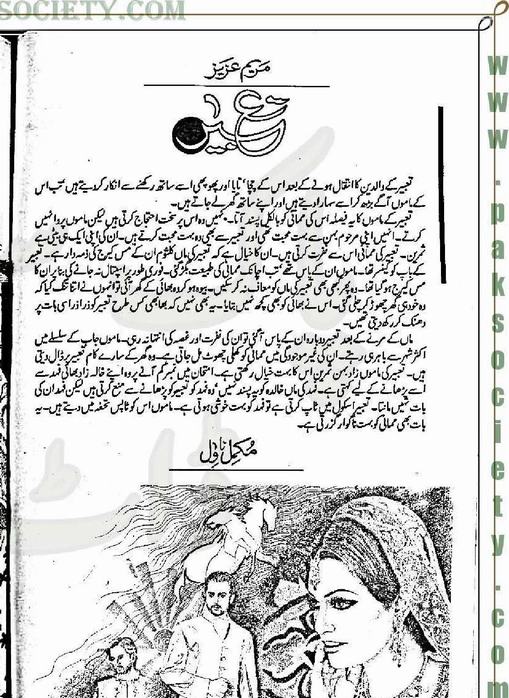 SOCIETY.COM
مریم عزیز
تعبیر کے والدین کا انتقال ہونے کے بعد اس کے چچا، تایا اور پھوپھی اسے ساتھ رکھنے سے انکار کر دیتے ہیں تب اس
کے ماموں آگے بڑھ کر اسے سہارا دیتے ہیں اور اپنے ساتھ گھر لے جاتے ہیں۔
تعبیر کے ماموں کا یہ فیصلہ اس کی ممانی کو بالکل پسند نہیں وہ اس پر سخت احتجاج کرتی ہیں لیکن ماموں پروا نہیں
کرتے۔ انہیں اپنی مرحوم بہن سے بہت محبت تھی اور تعبیر سے بھی وہ بہت محبت کرتے ہیں۔ ان کی اپنی ایک ہی بیٹی ہے
ثمرین۔ تعبیر کی ممانی اس سے نفرت کرتی ہیں۔ ان کا خیال ہے کہ تعبیر کی ماں کلثوم ان کے مس کیرج کی ذمہ دار ہے۔ تعبیر
کے باپ کو کینسر تھا۔ ماموں ان کے پاس تھے تب اچانک ممانی کی طبیعت بگڑ گئی۔ فوری طور پر اسپتال نہ جانے کی بنا پر ان کا
مس کیرج ہو گیا تھا۔ وہ پھر بھی تعبیر کی ماں کو معاف نہ کر سکیں۔ بیوہ ہو کر وہ بھائی کے گھر آئی تو انہوں نے اتنا تنگ کیا کہ
وہ خود ہی گھر چھوڑ کر چلی گئی۔ اس نے بھائی کو بھی کچھ نہیں بتایا۔ یہ بھی نہیں کہ بھابھی کس طرح تعبیر کو ذرا ذرا سی بات پر
دھنک کر رکھ دیتی تھیں۔
ماں کے مرنے کے بعد تعبیر دوبارہ ان کے پاس آ گئی تو ان کی نفرت اور غصہ کی انتہا نہ رہی۔ ماموں جاب کے سلسلے میں
اکثر شہر سے باہر ہی رہتے۔ ان کی غیر موجودگی میں ممانی کو کھلی چھوٹ مل جاتی ہے۔ وہ گھر کے سارے کام تعبیر پر ڈال دیتی
ہیں۔ تعبیر کی ماموں زاد بہن ثمرین اس کا بہت خیال رکھتی ہے۔ امتحان میں نمبر کم آنے پر وہ اپنے خالہ زاد بھائی فہد سے
اسے پڑھانے کے لیے کہتی ہے۔ فہد کی ماں خالدہ کو یہ پسند نہیں، وہ فہد کو تعبیر کو پڑھانے سے منع کرتی ہیں لیکن فہد ان کی
بات نہیں مانتا۔ تعبیر اسکول میں ٹاپ کرتی ہے تو فہد کو بہت خوشی ہوتی ہے۔ ماموں اس کو ٹاپس تحفہ میں دیتے ہیں۔ یہ
بات بھی ممانی کو بہت ناگوار گزرتی ہے۔
مکمل ناول
www.paksociety.com